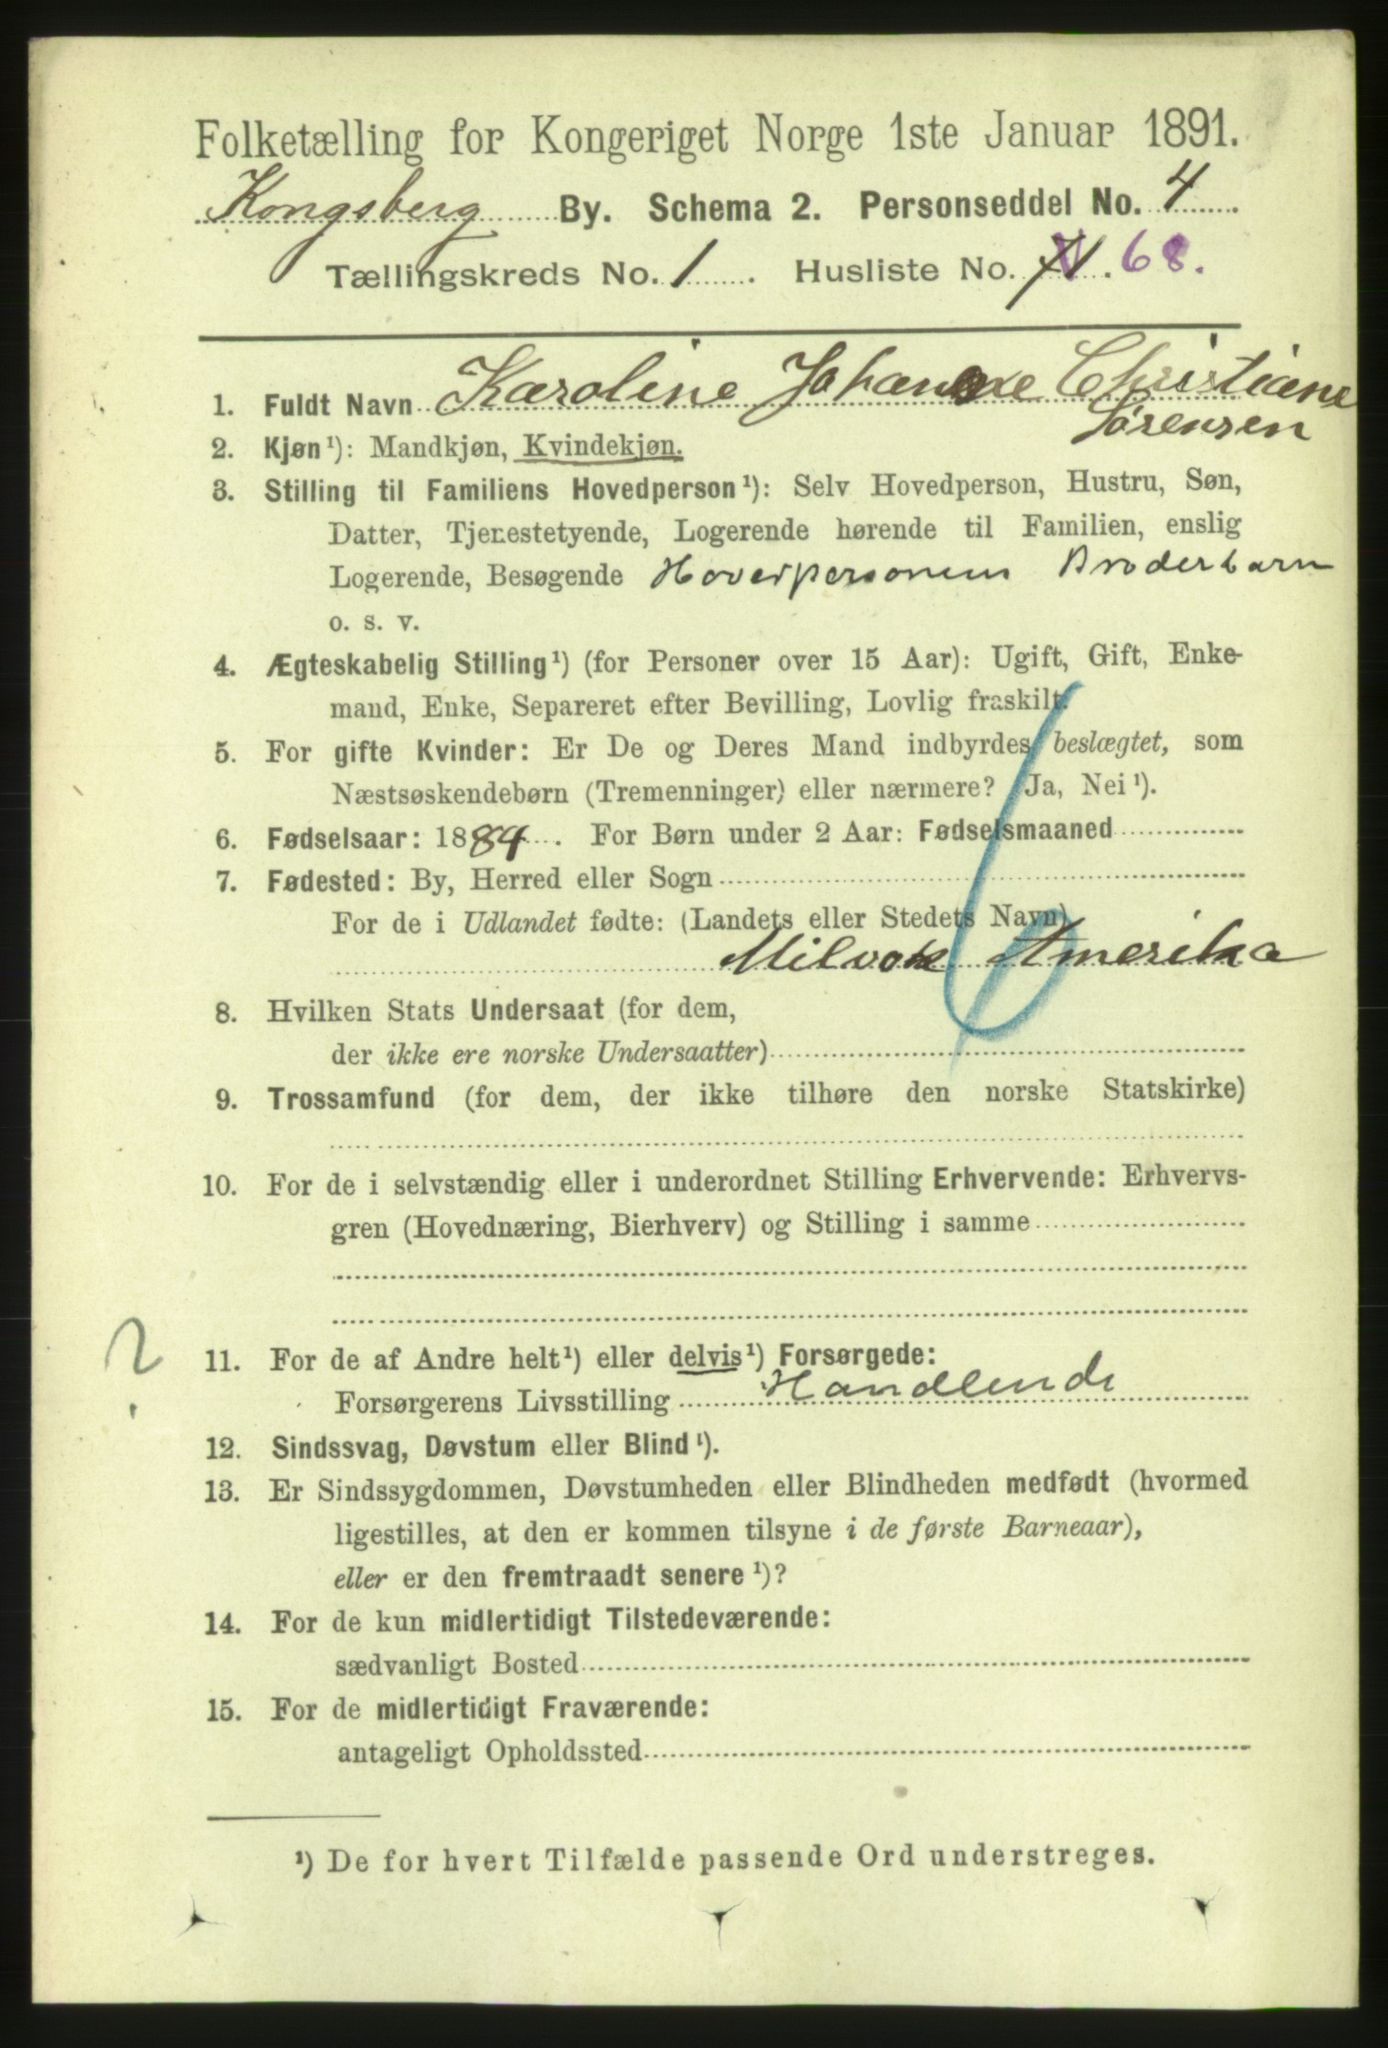 Folketælling for Kongeriget Norge 1ste Januar 1891.
Kongsberg By. Schema 2. Personseddel No. 4
Tællingskreds No. 1. Husliste No. 71. 68.
1. Fuldt Navn Karoline Johanne Christiane
Sørensen
2. Kjøn¹): Mandkjøn, Kvindekjøn.
3. Stilling til Familiens Hovedperson¹): Selv Hovedperson, Hustru, Søn,
Datter, Tjenestetyende, Logerende hørende til Familien, enslig
Logerende, Besøgende Hovedpersonens Broderbarn
o. s. v.
4. Ægteskabelig Stilling¹) (for Personer over 15 Aar): Ugift, Gift, Enke-
mand, Enke, Separeret efter Bevilling, Lovlig fraskilt.
5. For gifte Kvinder: Er De og Deres Mand indbyrdes beslægtet, som
Næstsøskendebørn (Tremenninger) eller nærmere? Ja, Nei¹).
6. Fødselsaar: 1884. For Børn under 2 Aar: Fødselsmaaned
7. Fødested: By, Herred eller Sogn
For de i Udlandet fødte: (Landets eller Stedets Navn)
Milvok Amerika
8. Hvilken Stats Undersaat (for dem,
der ikke ere norske Undersaatter)
9. Trossamfund (for dem, der ikke tilhøre den norske Statskirke)
10. For de i selvstændig eller i underordnet Stilling Erhvervende: Erhvervs-
gren (Hovednæring, Bierhverv) og Stilling i samme
?
11. For de af Andre helt¹) eller delvis¹) Forsørgede:
Forsørgerens Livsstilling Handlende
12. Sindssvag, Døvstum eller Blind¹).
13. Er Sindssygdommen, Døvstumheden eller Blindheden medfødt (hvormed
ligestilles, at den er kommen tilsyne i de første Barneaar),
eller er den fremtraadt senere¹)?
14. For de kun midlertidigt Tilstedeværende:
sædvanligt Bosted
15. For de midlertidigt Fraværende:
antageligt Opholdssted
¹) De for hvert Tilfælde passende Ord understreges.